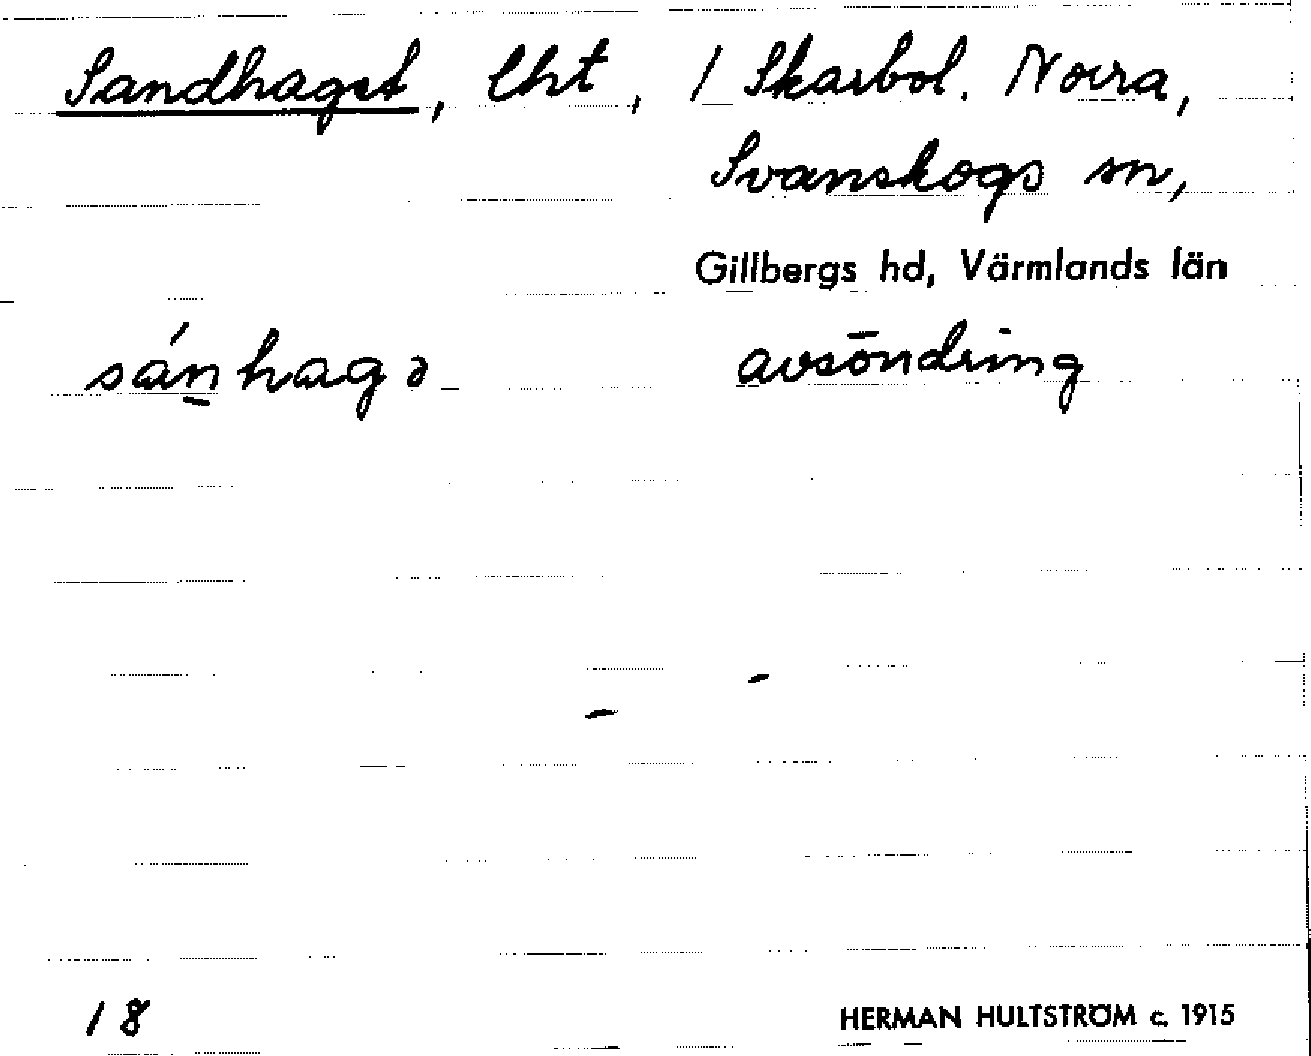 Sandhaget, lht, 1 Skarbol. Norra,
Svanskogs sn,
Gillbergs hd, Värmlands län
sánhagə avsöndring
18 HERMAN HULTSTRÖM c. 1915